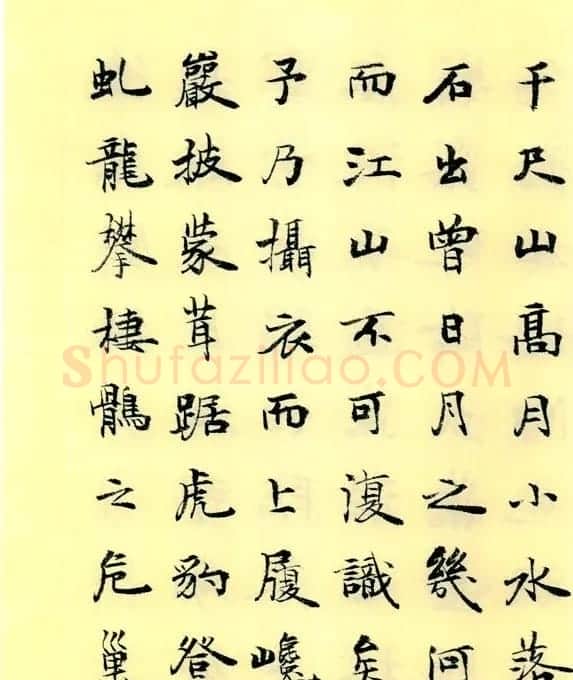 千尺山髙月小水落
石出曾日月之幾何
而江山不可復識矣
予乃攝衣而上履巉
巖披蒙茸踞虎豹登
虬龍攀棲鶻之危巢
Shufaziliao.COM